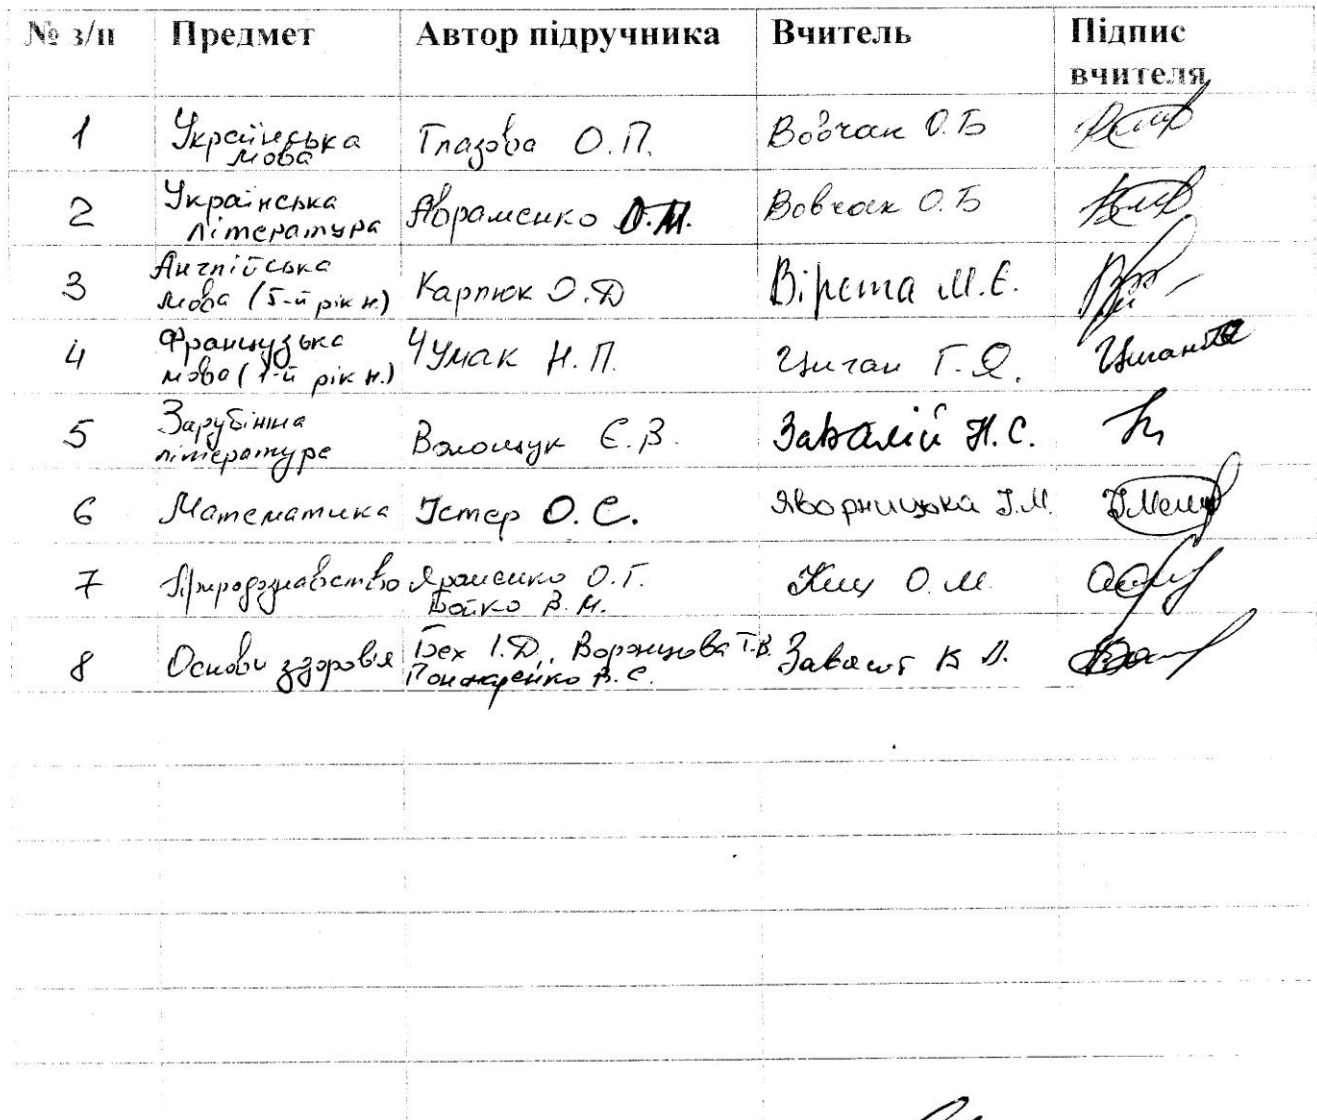 № з/п Предмет Автор підручника Вчитель Підпис вчителя
1 Українська мова Глазова О.П. Вовчак О.Б
2 Українська література Авраменко О.М. Вовчак О.Б
3 Англійська мова (5-й рік н.) Карпюк О.Д Вірста М.Є.
4 Французька мова (1-й рік н.) Чумак Н.П. Циган Г.Я.
5 Зарубіжна література Волощук Є.В. Завалій Н.С.
6 Математика Істер О.С. Яворницька І.М.
7 Природознавство Ярошенко О.Г. Бойко В.М. О.М.
8 Основи здоров'я Бех І.Д., Воронцова Т.В. Пономаренко В.С.